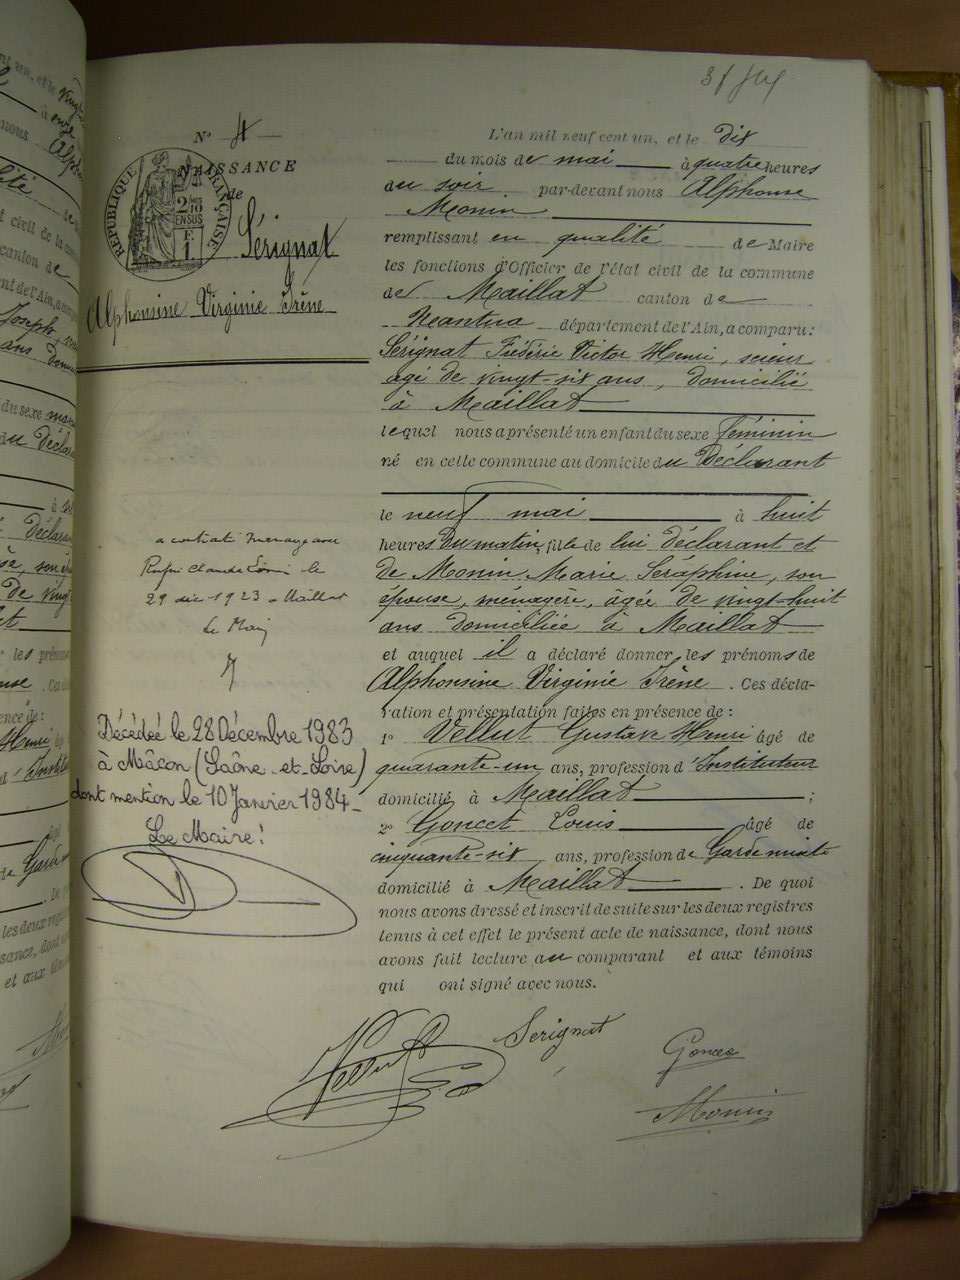 Nº 4
NAISSANCE
de
RÉPUBLIQUE FRANÇAISE
Sérignat
Alphonsine Virginie Irène
a contracté mariage avec
Claude le
29 déc 1923 à Maillat
Le Maire
Décédée le 28 Décembre 1983
à Mâcon (Saône-et-Loire)
dont mention le 10 Janvier 1984
Le Maire!
L'an mil neuf cent un, et le dix
du mois de mai à quatre heures
du soir par-devant nous Alphonse
Monin
remplissant en qualité de Maire
les fonctions d'Officier de l'état civil de la commune
de Maillat canton de
Nantua département de l'Ain, a comparu:
Sérignat Frédéric Victor Henri, scieur
âgé de vingt-six ans, domicilié
à Maillat
lequel nous a présenté un enfant du sexe féminin
né en cette commune au domicile du Déclarant
le neuf mai à huit
heures du matin, fille de lui déclarant et
de Monin Marie Séraphine, son
épouse, ménagère, âgée de vingt-huit
ans domiciliée à Maillat
et auquel il a déclaré donner les prénoms de
Alphonsine Virginie Irène. Ces décla-
ration et présentation faites en présence de:
1º Vellut Gustave Henri âgé de
quarante-un ans, profession d'Instituteur
domicilié à Maillat ;
2º Goncet Louis âgé de
cinquante-six ans, profession de Garde mixte
domicilié à Maillat. De quoi
nous avons dressé et inscrit de suite sur les deux registres
tenus à cet effet le présent acte de naissance, dont nous
avons fait lecture au comparant et aux témoins
qui ont signé avec nous.
Vellut Serignat
Goncet
Monin